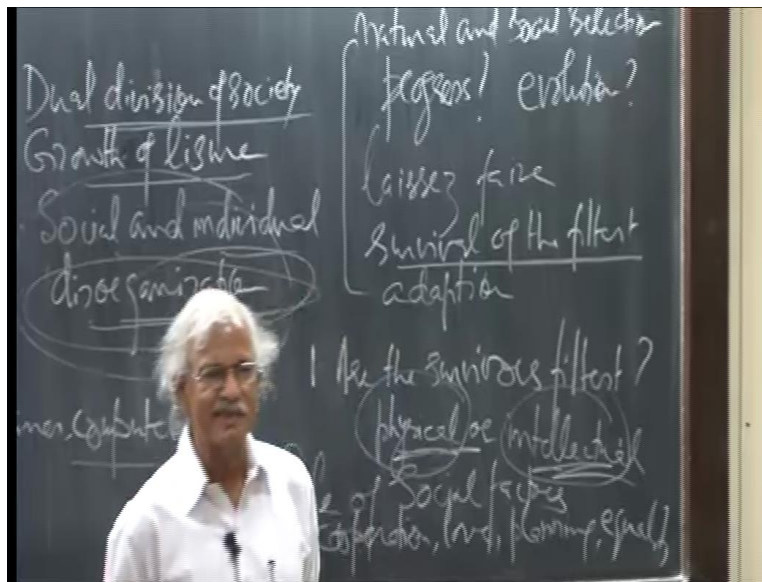 Dual division of society
Growth of lisure
Social and individual
disorganization
computer
natural and social selection
progress? evolution?
laissez faire
survival of the fittest
adaption
1 Are the survivors fittest?
physical or intellectual
of Social factors
Cooperation, love, planning, equality